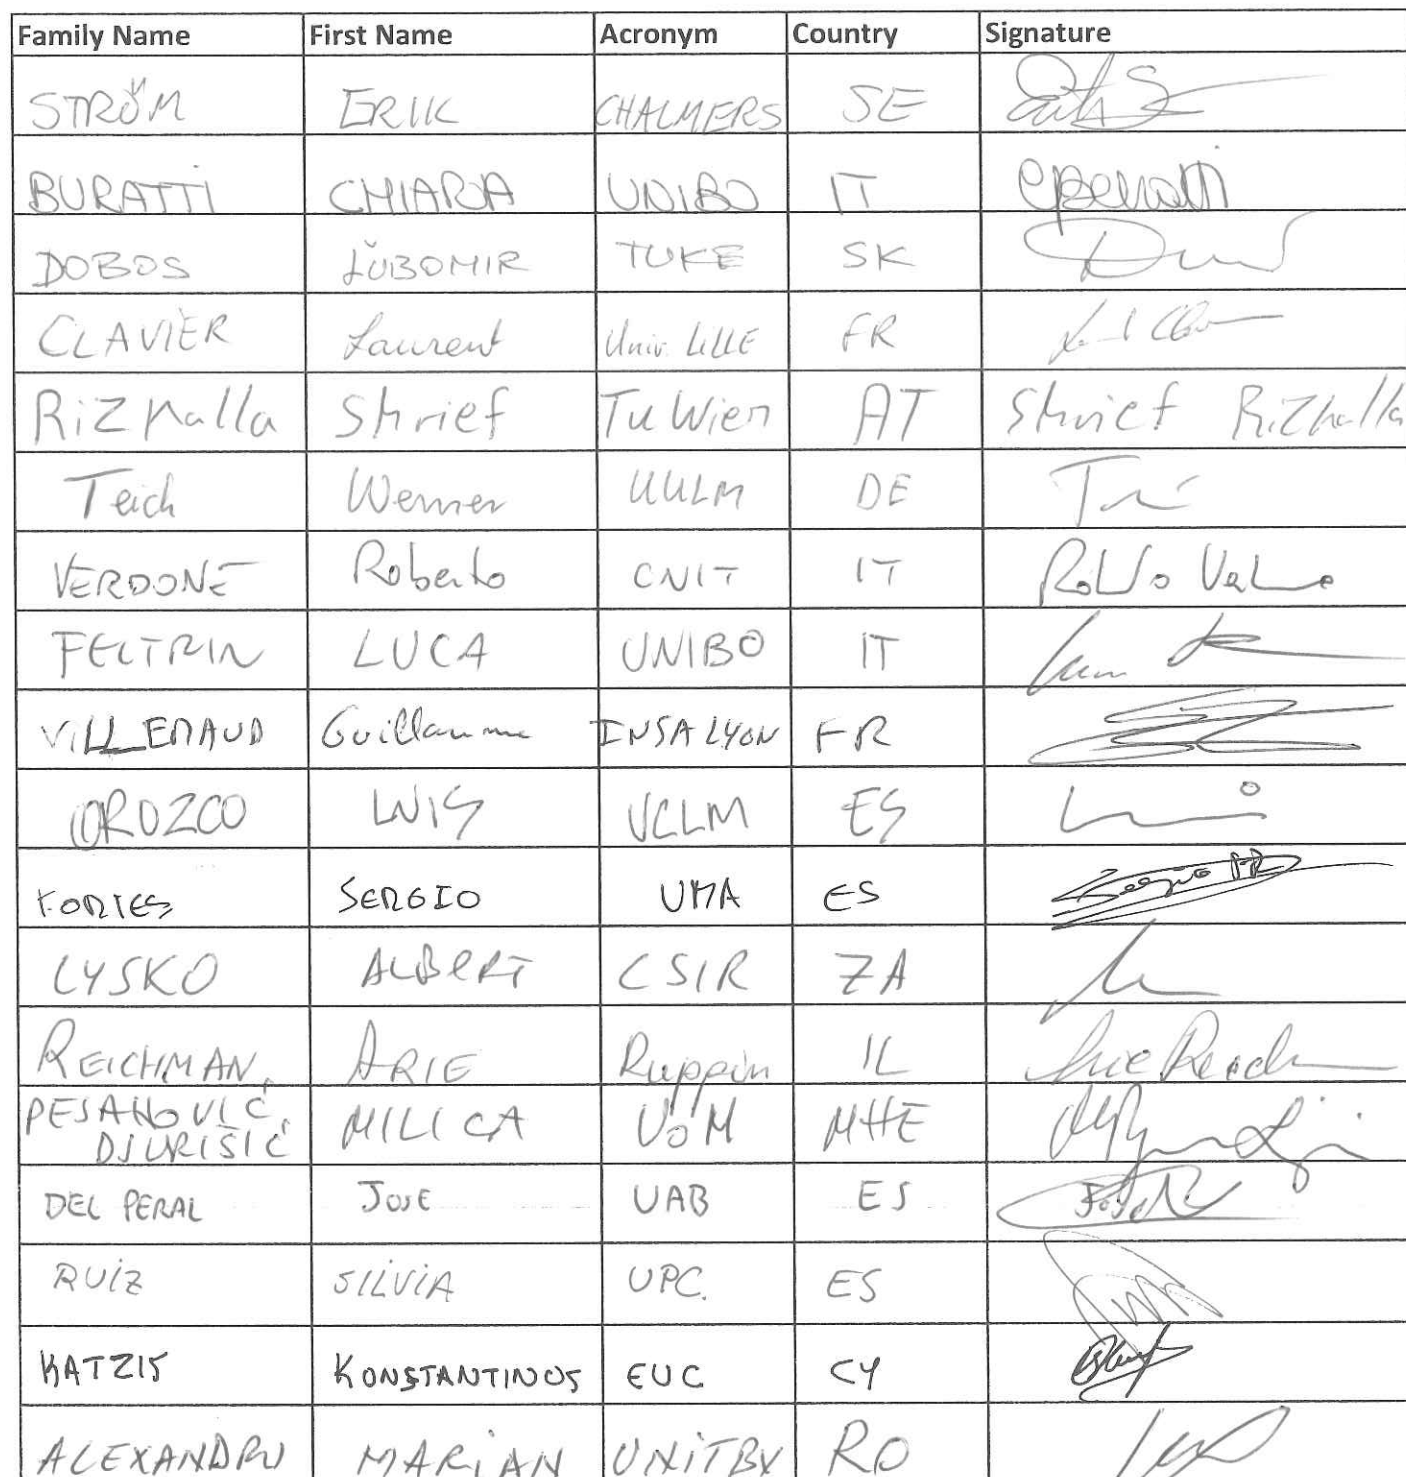 Family Name First Name Acronym Country Signature
STRÖM ERIK CHALMERS SE
BURATTI CHIARA UNIBO IT
DOBOS ĽUBOMIR TUKE SK
CLAVIER Laurent Univ. LILLE FR
Rizkalla Shrief TU Wien AT Shrief Rizkalla
Teich Werner UULM DE
VERDONE Roberto CNIT IT
FELTRIN LUCA UNIBO IT
VILLEMAUD Guillaume INSA LYON FR
OROZCO LUIS UCLM ES
FORTES SERGIO UMA ES
LYSKO ALBERT CSIR ZA
REICHMAN, ARIE Ruppin IL
PEJANOVIĆ, MILICA UoM MNE
DJURIŠIĆ
DEL PERAL JOSE UAB ES
RUIZ SILVIA UPC. ES
KATZIS KONSTANTINOS EUC CY
ALEXANDRU MARIAN UNITBV RO